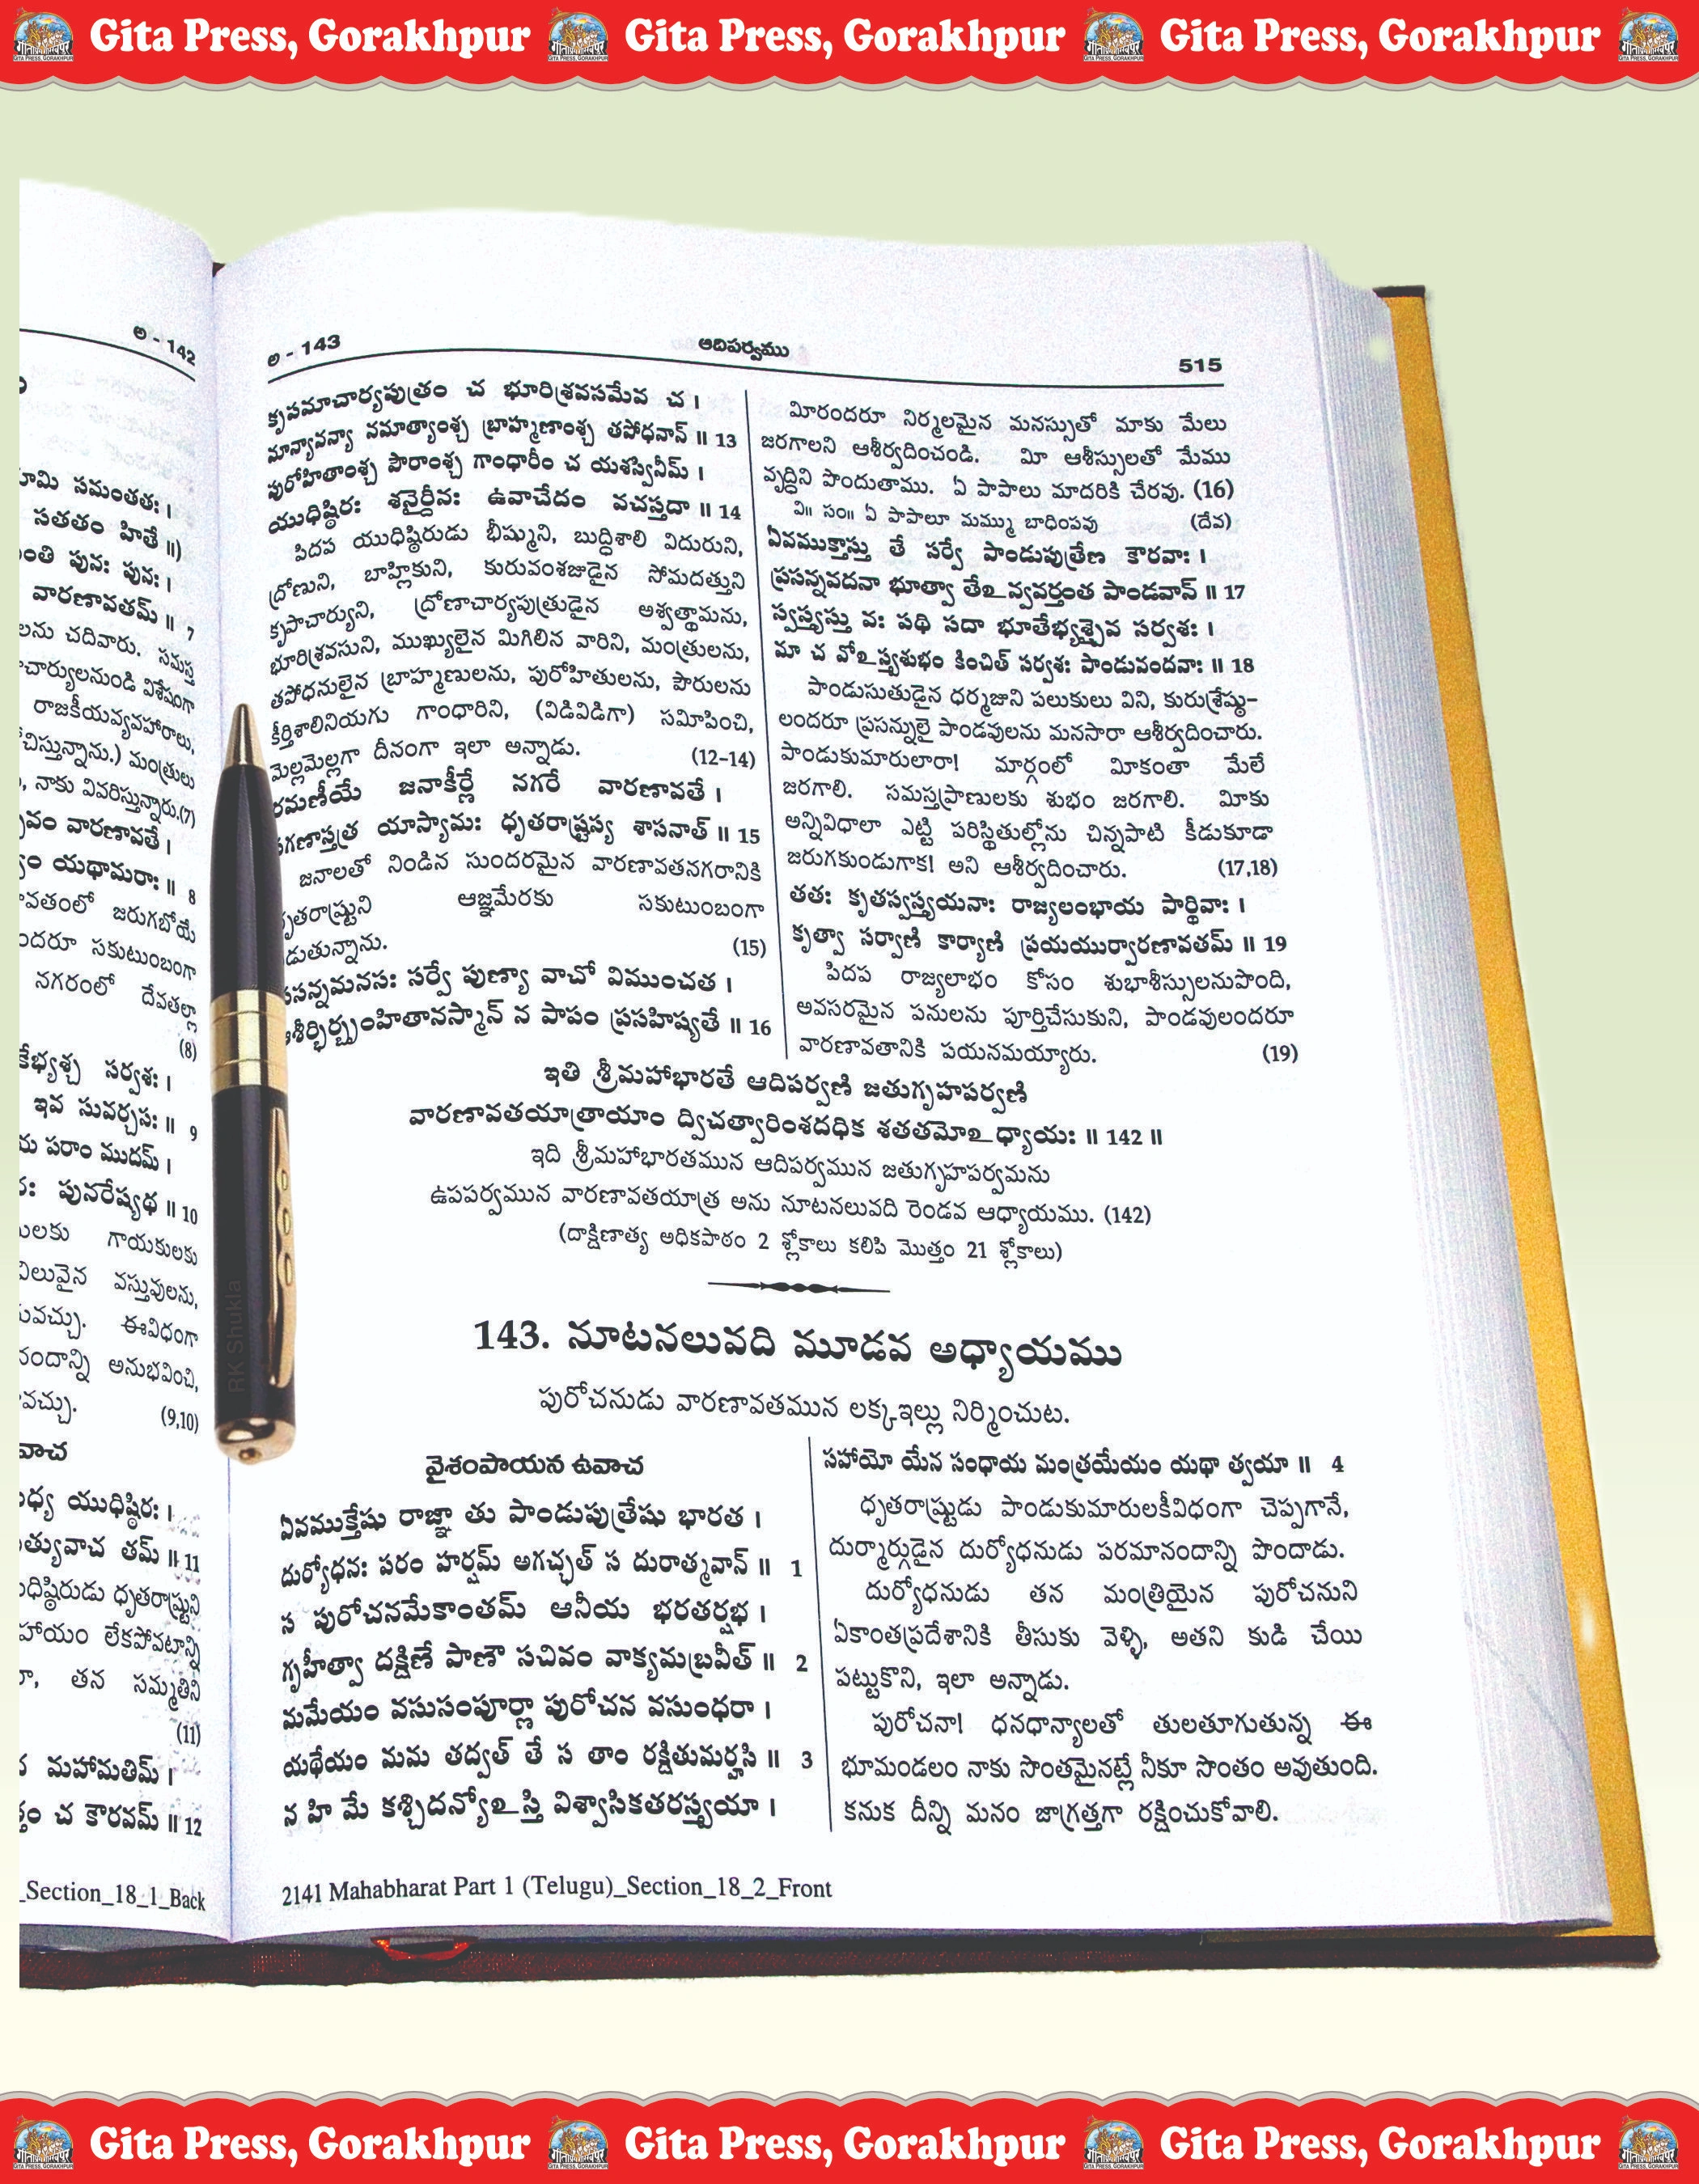 Gita Press, Gorakhpur Gita Press, Gorakhpur Gita Press, Gorakhpur
అ - 142
సమంతతః ।
సతతం హితే ॥)
పునః పునః ।
వారణావతమ్ ॥ 7
చదివారు. సమస్త
విశేషంగా
రాజకీయవ్యవహారాలు,
మంత్రులు
నాకు వివరిస్తున్నారు.(7)
వారణావతే ।
యథామరాః ॥ 8
జరుగబోయే
సకుటుంబంగా
నగరంలో దేవతల్లా
(8)
సర్వశః ।
ఇవ సువర్చసః ॥ 9
పరాం ముదమ్ ।
పునరేష్యథ ॥ 10
గాయకులకు
వస్తువులను,
ఈవిధంగా
అనుభవించి,
(9,10)
యుధిష్ఠిరః ।
తమ్ ॥ 11
ధృతరాష్ట్రుని
లేకపోవటాన్ని
తన సమ్మతిని
(11)
మహామతిమ్ ।
చ కౌరవమ్ ॥ 12
_Section_18_1_Back
అ - 143 ఆదిపర్వము 515
కృపమాచార్యపుత్రం చ భూరిశ్రవసమేవ చ ।
మాన్యానన్యా నమాత్యాంశ్చ బ్రాహ్మణాంశ్చ తపోధనాన్ ॥ 13
పురోహితాంశ్చ పౌరాంశ్చ గాంధారీం చ యశస్వినీమ్ ।
యుధిష్ఠిరః శనైర్దీనః ఉవాచేదం వచస్తదా ॥ 14
పిదప యుధిష్ఠిరుడు భీష్ముని, బుద్ధిశాలి విదురుని,
ద్రోణుని, బాహ్లికుని, కురువంశజుడైన సోమదత్తుని
కృపాచార్యుని, ద్రోణాచార్యపుత్రుడైన అశ్వత్థామను,
భూరిశ్రవసుని, ముఖ్యులైన మిగిలిన వారిని, మంత్రులను,
తపోధనులైన బ్రాహ్మణులను, పురోహితులను, పౌరులను
కీర్తిశాలినియగు గాంధారిని, (విడివిడిగా) సమీపించి,
మెల్లమెల్లగా దీనంగా ఇలా అన్నాడు. (12-14)
రమణీయే జనాకీర్ణే నగరే వారణావతే ।
సగణాస్తత్ర యాస్యామః ధృతరాష్ట్రస్య శాసనాత్ ॥ 15
జనాలతో నిండిన సుందరమైన వారణావతనగరానికి
ధృతరాష్ట్రుని ఆజ్ఞమేరకు సకుటుంబంగా
(15)
ప్రసన్నమనసః సర్వే పుణ్యా వాచో విముంచత ।
ఆశీర్భిర్బృంహితానస్మాన్ న పాపం ప్రసహిష్యతే ॥ 16
మీరందరూ నిర్మలమైన మనస్సుతో మాకు మేలు
జరగాలని ఆశీర్వదించండి. మీ ఆశీస్సులతో మేము
వృద్ధిని పొందుతాము. ఏ పాపాలు మాదరికి చేరవు. (16)
వి॥ సం॥ ఏ పాపాలూ మమ్ము బాధింపవు (దేవ)
ఏవముక్తాస్తు తే సర్వే పాండుపుత్రేణ కౌరవాః ।
ప్రసన్నవదనా భూత్వా తేఽన్వవర్తంత పాండవాన్ ॥ 17
స్వస్త్యస్తు వః పథి సదా భూతేభ్యశ్చైవ సర్వశః ।
మా చ వోఽస్త్వశుభం కించిత్ సర్వశః పాండునందనాః ॥ 18
పాండుసుతుడైన ధర్మజుని పలుకులు విని, కురుశ్రేష్ఠు-
లందరూ ప్రసన్నులై పాండవులను మనసారా ఆశీర్వదించారు.
పాండుకుమారులారా! మార్గంలో మీకంతా మేలే
జరగాలి. సమస్తప్రాణులకు శుభం జరగాలి. మీకు
అన్నివిధాలా ఎట్టి పరిస్థితుల్లోను చిన్నపాటి కీడుకూడా
జరుగకుండుగాక! అని ఆశీర్వదించారు. (17,18)
తతః కృతస్వస్త్యయనాః రాజ్యలంభాయ పార్థివాః ।
కృత్వా సర్వాణి కార్యాణి ప్రయయుర్వారణావతమ్ ॥ 19
పిదప రాజ్యలాభం కోసం శుభాశీస్సులనుపొంది,
అవసరమైన పనులను పూర్తిచేసుకుని, పాండవులందరూ
వారణావతానికి పయనమయ్యారు. (19)
ఇతి శ్రీమహాభారతే ఆదిపర్వణి జతుగృహపర్వణి
వారణావతయాత్రాయాం ద్విచత్వారింశదధిక శతతమోఽధ్యాయః ॥ 142 ॥
ఇది శ్రీమహాభారతమున ఆదిపర్వమున జతుగృహపర్వమను
ఉపపర్వమున వారణావతయాత్ర అను నూటనలువది రెండవ ఆధ్యాయము. (142)
(దాక్షిణాత్య అధికపాఠం 2 శ్లోకాలు కలిపి మొత్తం 21 శ్లోకాలు)
143. నూటనలువది మూడవ అధ్యాయము
పురోచనుడు వారణావతమున లక్కఇల్లు నిర్మించుట.
వైశంపాయన ఉవాచ
ఏవముక్తేషు రాజ్ఞా తు పాండుపుత్రేషు భారత ।
దుర్యోధనః పరం హర్షమ్ అగచ్ఛత్ స దురాత్మవాన్ ॥ 1
స పురోచనమేకాంతమ్ ఆనీయ భరతర్షభ ।
గృహీత్వా దక్షిణే పాణౌ సచివం వాక్యమబ్రవీత్ ॥ 2
మమేయం వసుసంపూర్ణా పురోచన వసుంధరా ।
యథేయం మమ తద్వత్ తే స తాం రక్షితుమర్హసి ॥ 3
న హి మే కశ్చిదన్యోఽస్తి విశ్వాసికతరస్త్వయా ।
సహాయో యేన సంధాయ మంత్రయేయం యథా త్వయా ॥ 4
ధృతరాష్ట్రుడు పాండుకుమారులకీవిధంగా చెప్పగానే,
దుర్మార్గుడైన దుర్యోధనుడు పరమానందాన్ని పొందాడు.
దుర్యోధనుడు తన మంత్రియైన పురోచనుని
ఏకాంతప్రదేశానికి తీసుకు వెళ్ళి, అతని కుడి చేయి
పట్టుకొని, ఇలా అన్నాడు.
పురోచనా! ధనధాన్యాలతో తులతూగుతున్న ఈ
భూమండలం నాకు సొంతమైనట్లే నీకూ సొంతం అవుతుంది.
కనుక దీన్ని మనం జాగ్రత్తగా రక్షించుకోవాలి.
2141 Mahabharat Part 1 (Telugu)_Section_18_2_Front
RK Shukla
Gita Press, Gorakhpur Gita Press, Gorakhpur Gita Press, Gorakhpur